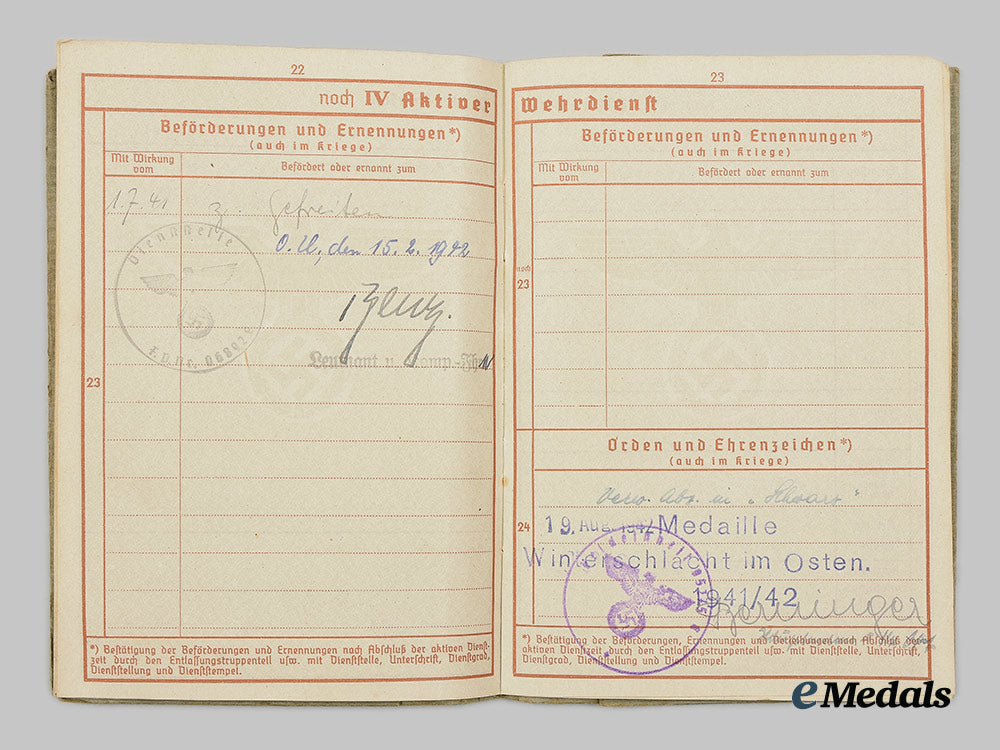 22
noch IV Aktiver
Beförderungen und Ernennungen*)
(auch im Kriege)
Mit Wirkung vom
Befördert oder ernannt zum
1.7.41 z. Gefreiten
O.U., den 15.2.1942
Leutnant u. Komp.-Fhr.
Dienststelle
F.P.Nr.
23
*) Bestätigung der Beförderungen und Ernennungen nach Abschluß der aktiven Dienst-
zeit durch den Entlassungstruppenteil usw. mit Dienststelle, Unterschrift, Dienstgrad,
Dienststellung und Dienststempel.
23
Wehrdienst
Beförderungen und Ernennungen*)
(auch im Kriege)
Mit Wirkung vom
Befördert oder ernannt zum
noch
23
Orden und Ehrenzeichen*)
(auch im Kriege)
Verw. Abz. in "Schwarz"
24
19. Aug. 1942 Medaille
Winterschlacht im Osten.
1941/42
Berninger
*) Bestätigung der Beförderungen, Ernennungen und Verleihungen nach Abschluß der
aktiven Dienstzeit durch den Entlassungstruppenteil usw. mit Dienststelle, Unterschrift,
Dienstgrad, Dienststellung und Dienststempel.
eMedals